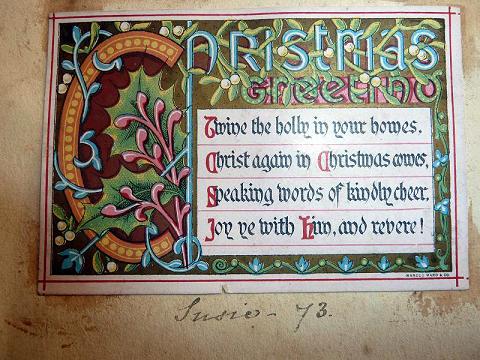 Christmas
Greeting
Twine the holly in your homes,
Christ again in Christmas comes,
Speaking words of kindly cheer,
Joy ye with Him, and revere!
MARCUS WARD & CO.
Susie - 73.